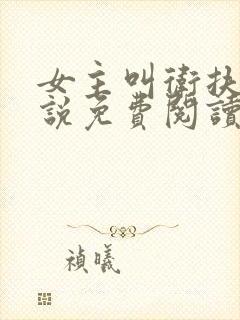 女主叫衛扶
說免費閱讀
禎曦